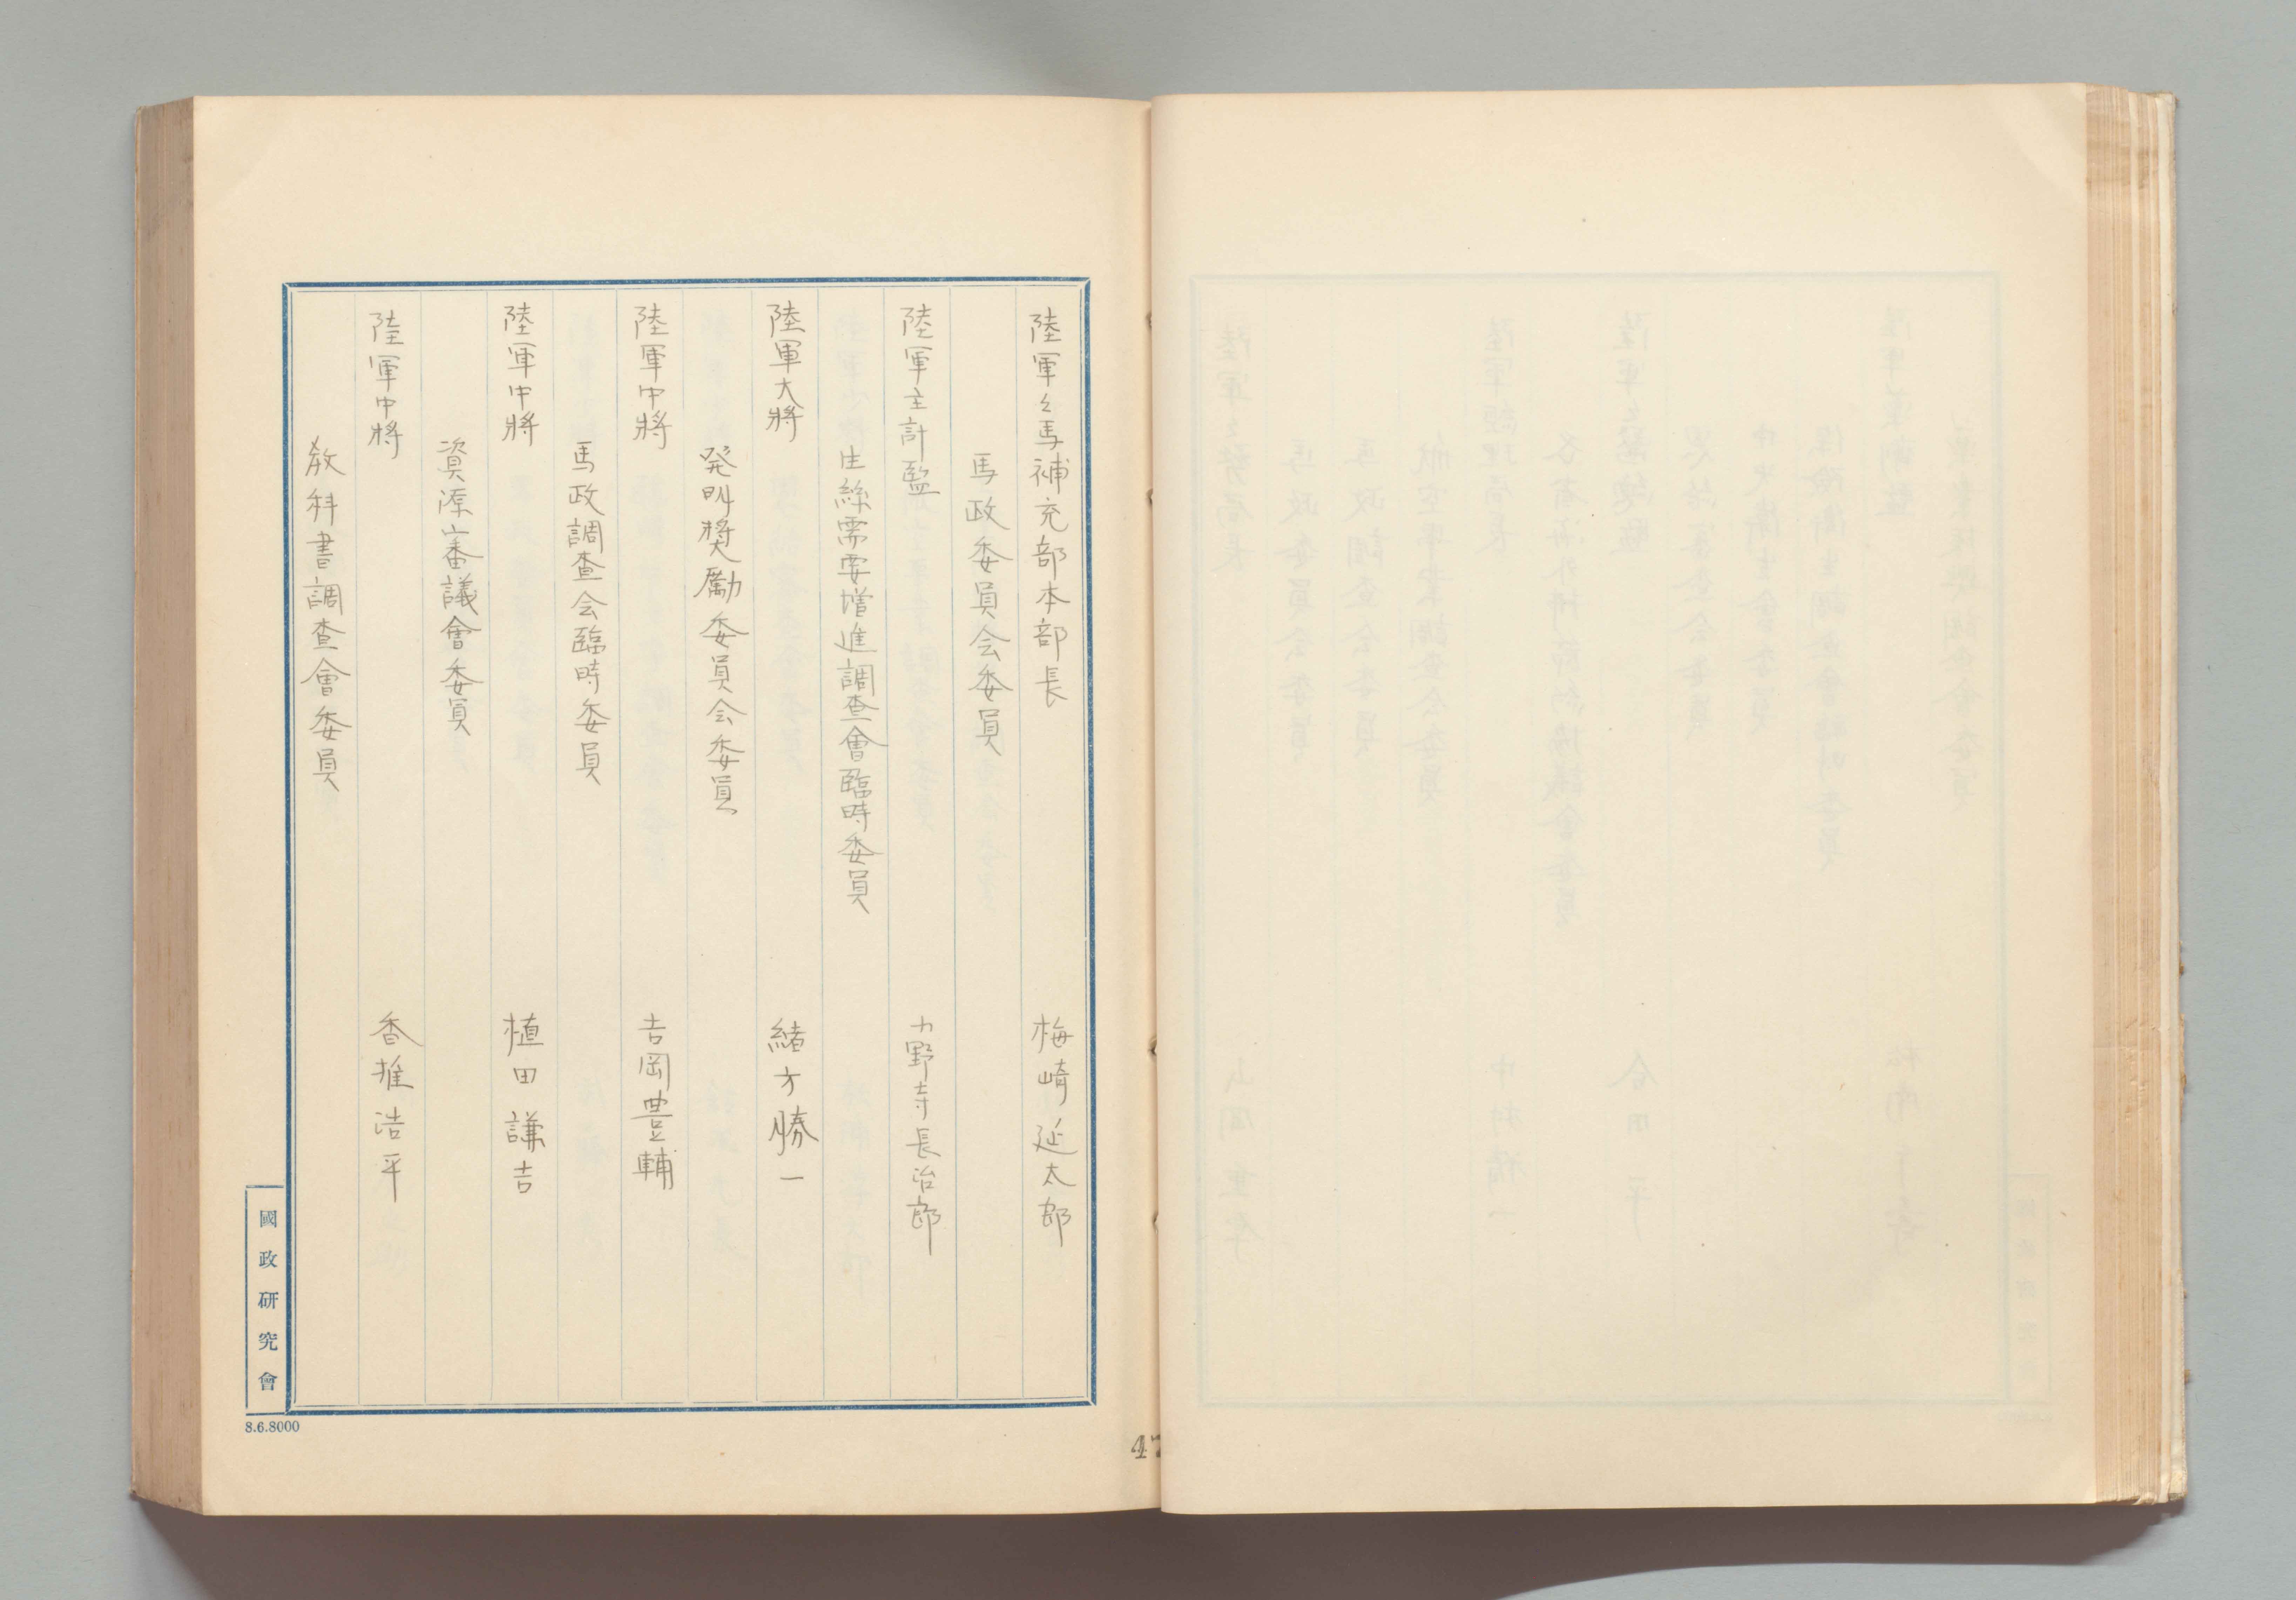 陸軍々馬補充部本部長 梅崎延太郎
馬政委員会委員
陸軍主計監 小野寺長治郎
生絲需要増進調査會臨時委員
陸軍大將 緒方勝一
発明奬励委員会委員
陸軍中將 吉岡豊輔
馬政調査会臨時委員
陸軍中將 植田謙吉
資源審議會委員
陸軍中將 香椎浩平
教科書調査會委員
國政研究會
8.6.8000
47